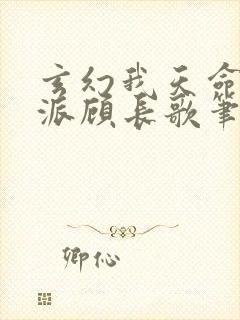 玄幻我天命
派顾长歌笔
卿伈